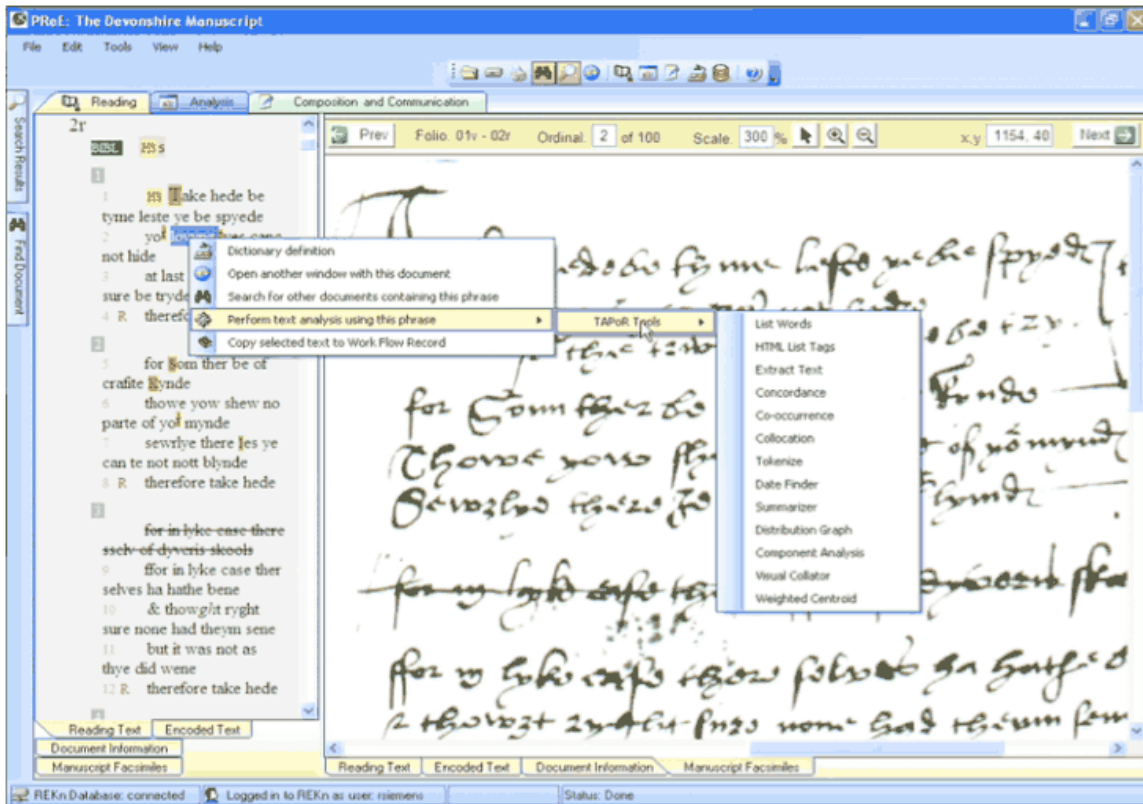 PReE: The Devonshire Manuscript
File Edit Tools View Help
Reading Analysis Composition and Communication
Search Results
Find Document
2r
BIBL H3 s
1
1 H3 Take hede be
tyme leste ye be spyede
2 yor
not hide
3 at last
sure be tryde
4 R therefo
2
5 for Som ther be of
crafite Kynde
6 thowe yow shew no
parte of yor mynde
7 sewrlye there Ies ye
can te not nott blynde
8 R therefore take hede
3
for in lyke case there
sselv of dyveris skools
9 ffor in lyke case ther
selves ha hathe bene
10 & thowght ryght
sure none had theym sene
11 but it was not as
thye did wene
12 R therefore take hede
4
Reading Text Encoded Text
Document Information
Manuscript Facsimiles
Prev Folio. 01v - 02r Ordinal. 2 of 100 Scale. 300 % x,y 1154, 40 Next
Dictionary definition
Open another window with this document
Search for other documents containing this phrase
Perform text analysis using this phrase
Copy selected text to Work Flow Record
TAPoR Tools
List Words
HTML List Tags
Extract Text
Concordance
Co-occurrence
Collocation
Tokenize
Date Finder
Summarizer
Distribution Graph
Component Analysis
Visual Collator
Weighted Centroid
for Som ther be
Thowe yow
of yor mynd
Sewrlye there
for in lyke case
ffor in lyke case there selves ha hathe
thowgt ryght sure none had theym sene
Reading Text Encoded Text Document Information Manuscript Facsimiles
REKn Database: connected Logged in to REKn as user: rsiemens Status: Done